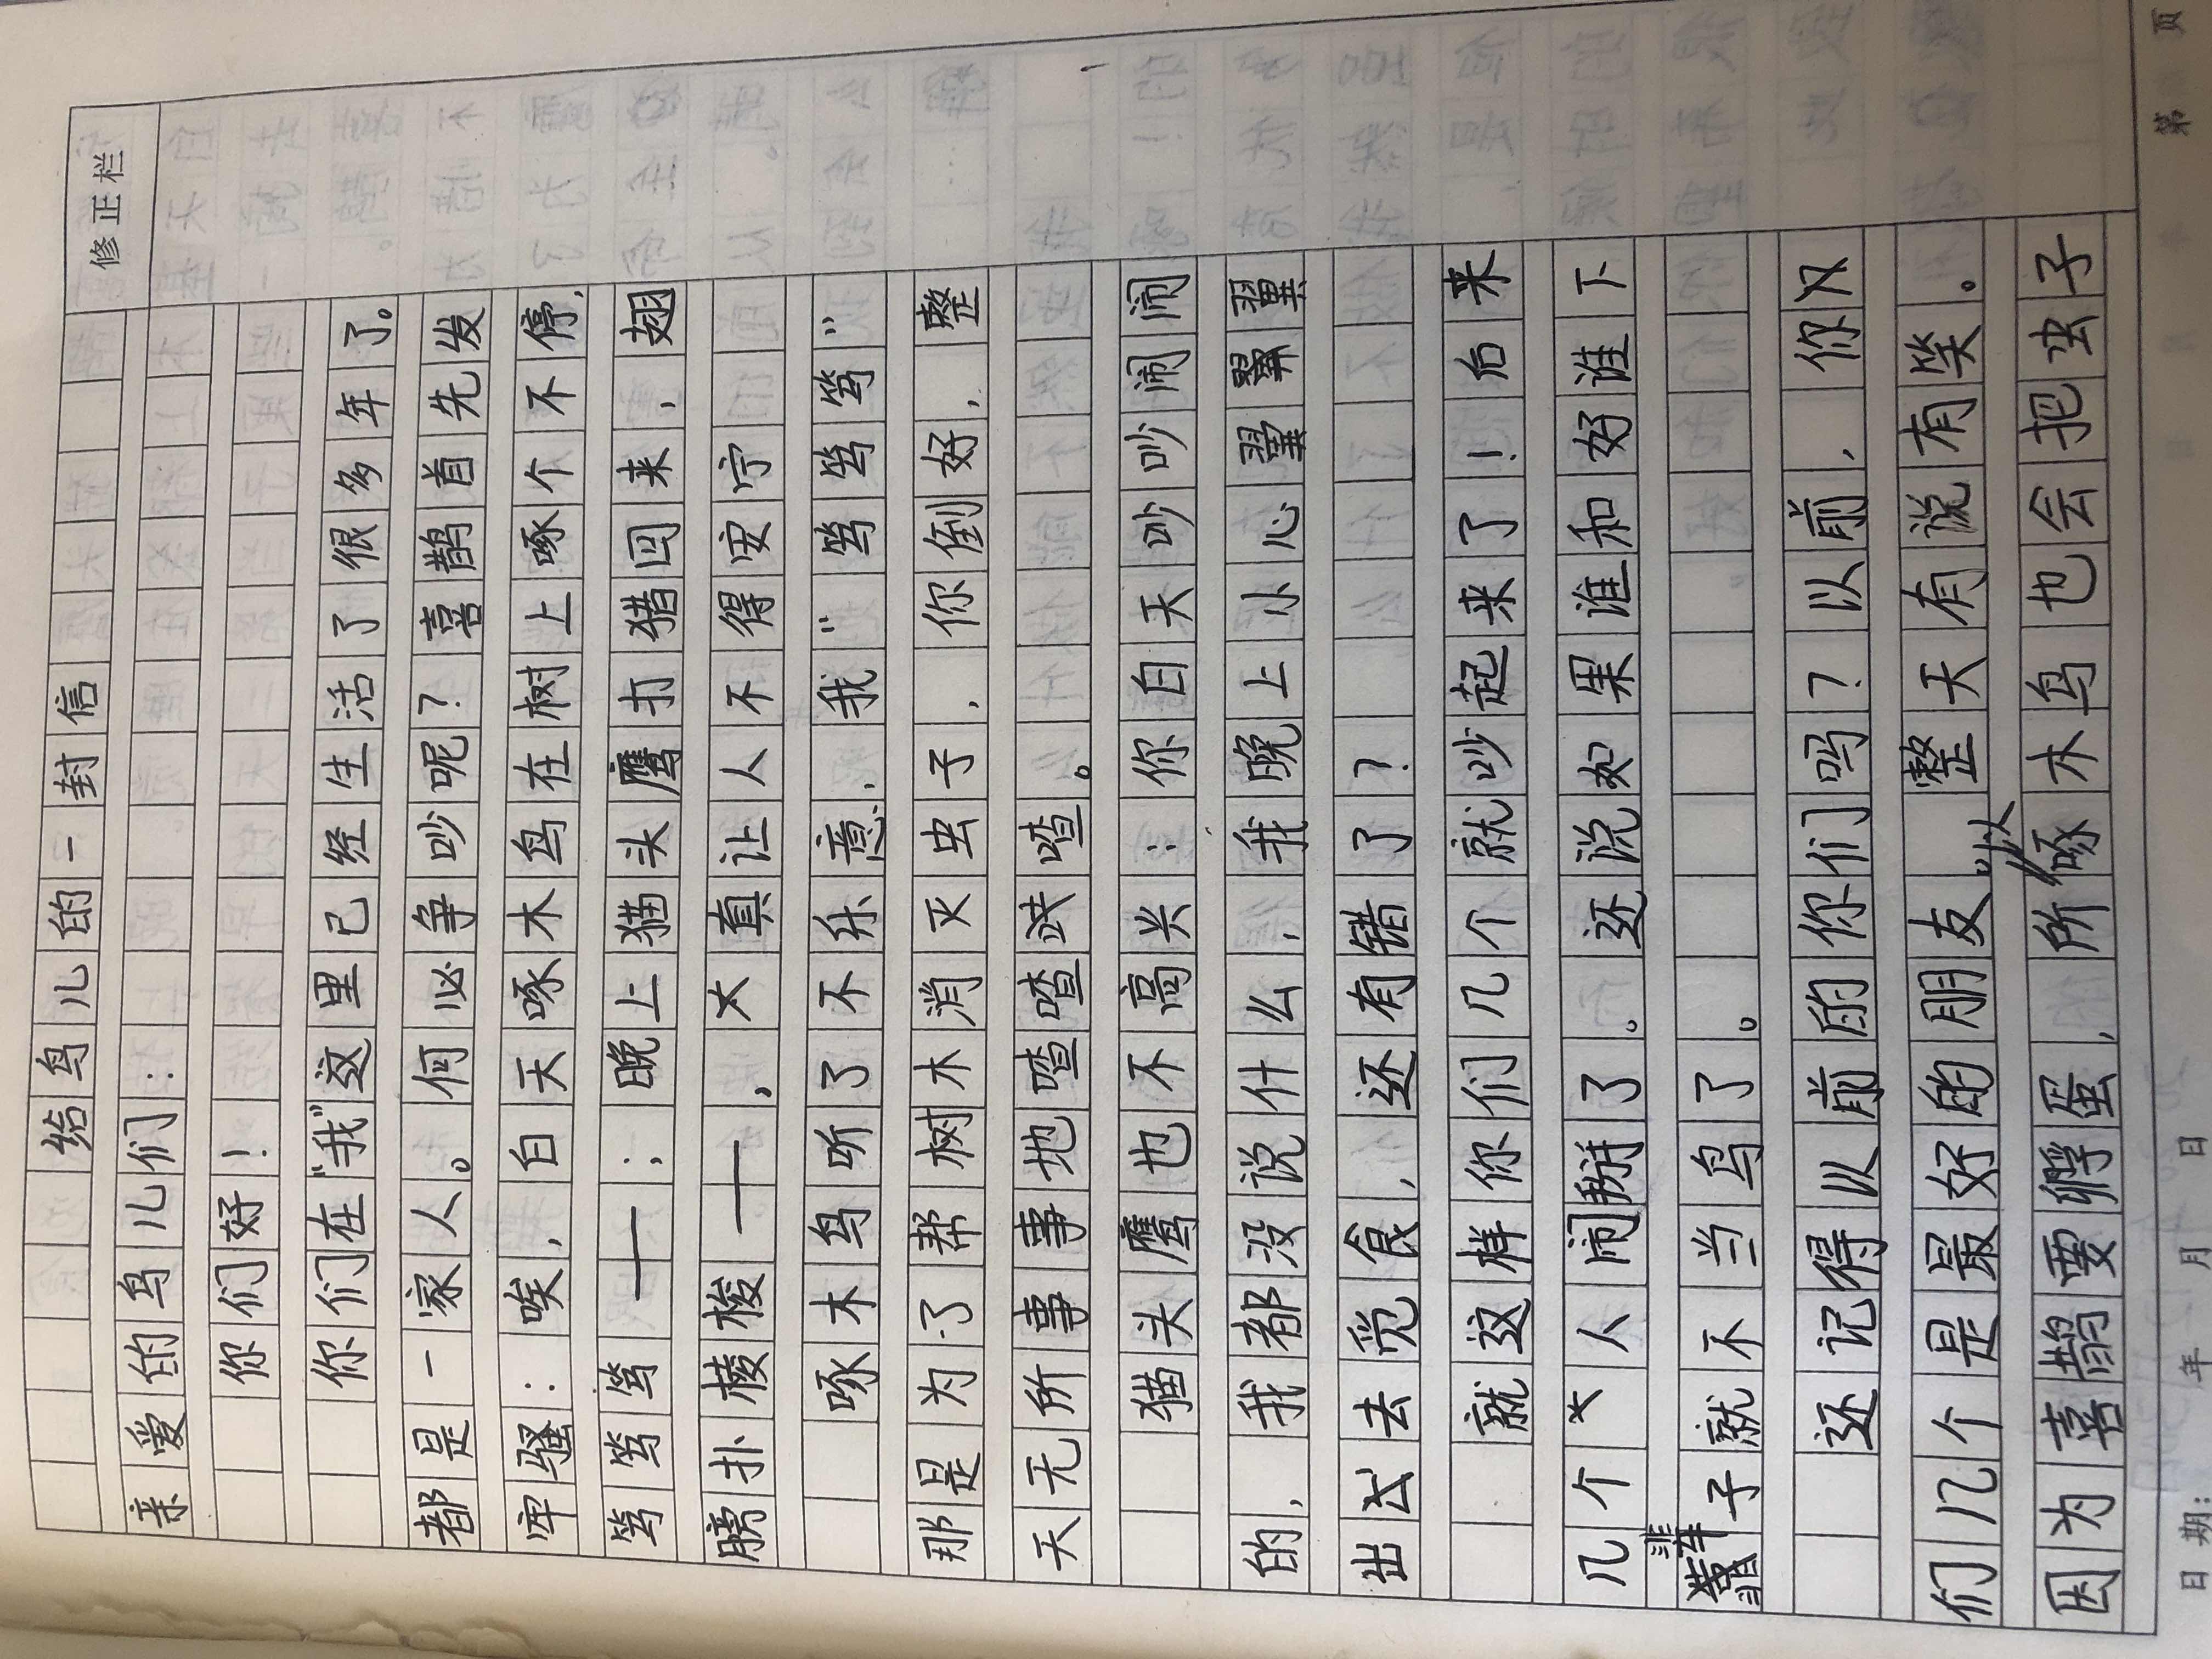 修正栏
给鸟儿的一封信
亲爱的鸟儿们：
你们好！
你们在"我"这里已经生活了很多年了。
都是一家人。何必争吵呢？喜鹊首先发
牢骚：唉，白天啄木鸟在树上啄个不停，
笃笃笃——；晚上猫头鹰打猎回来，翅
膀扑棱梭——，大真让人不得安宁
啄木鸟听了不乐意，我"笃笃笃"
那是为了帮树木消灭虫子，你倒好，整
天无所事事地喳喳趺喳。
猫头鹰也不高兴：你白天吵吵闹闹
的，我都没说什么，我晚上小心翼翼翼
出去觅食，还有错了？
就这样你们几个就吵起来了！后来
几个大人闹掰了。还说如果谁和好谁下
辈子就不当鸟了。
还记得以前的你们吗？以前，你
们几个是最好的朋友 整天有说有笑。
因为喜鹊要孵蛋，所以啄木鸟也会把虫子
日期： 年 月 日 第 页